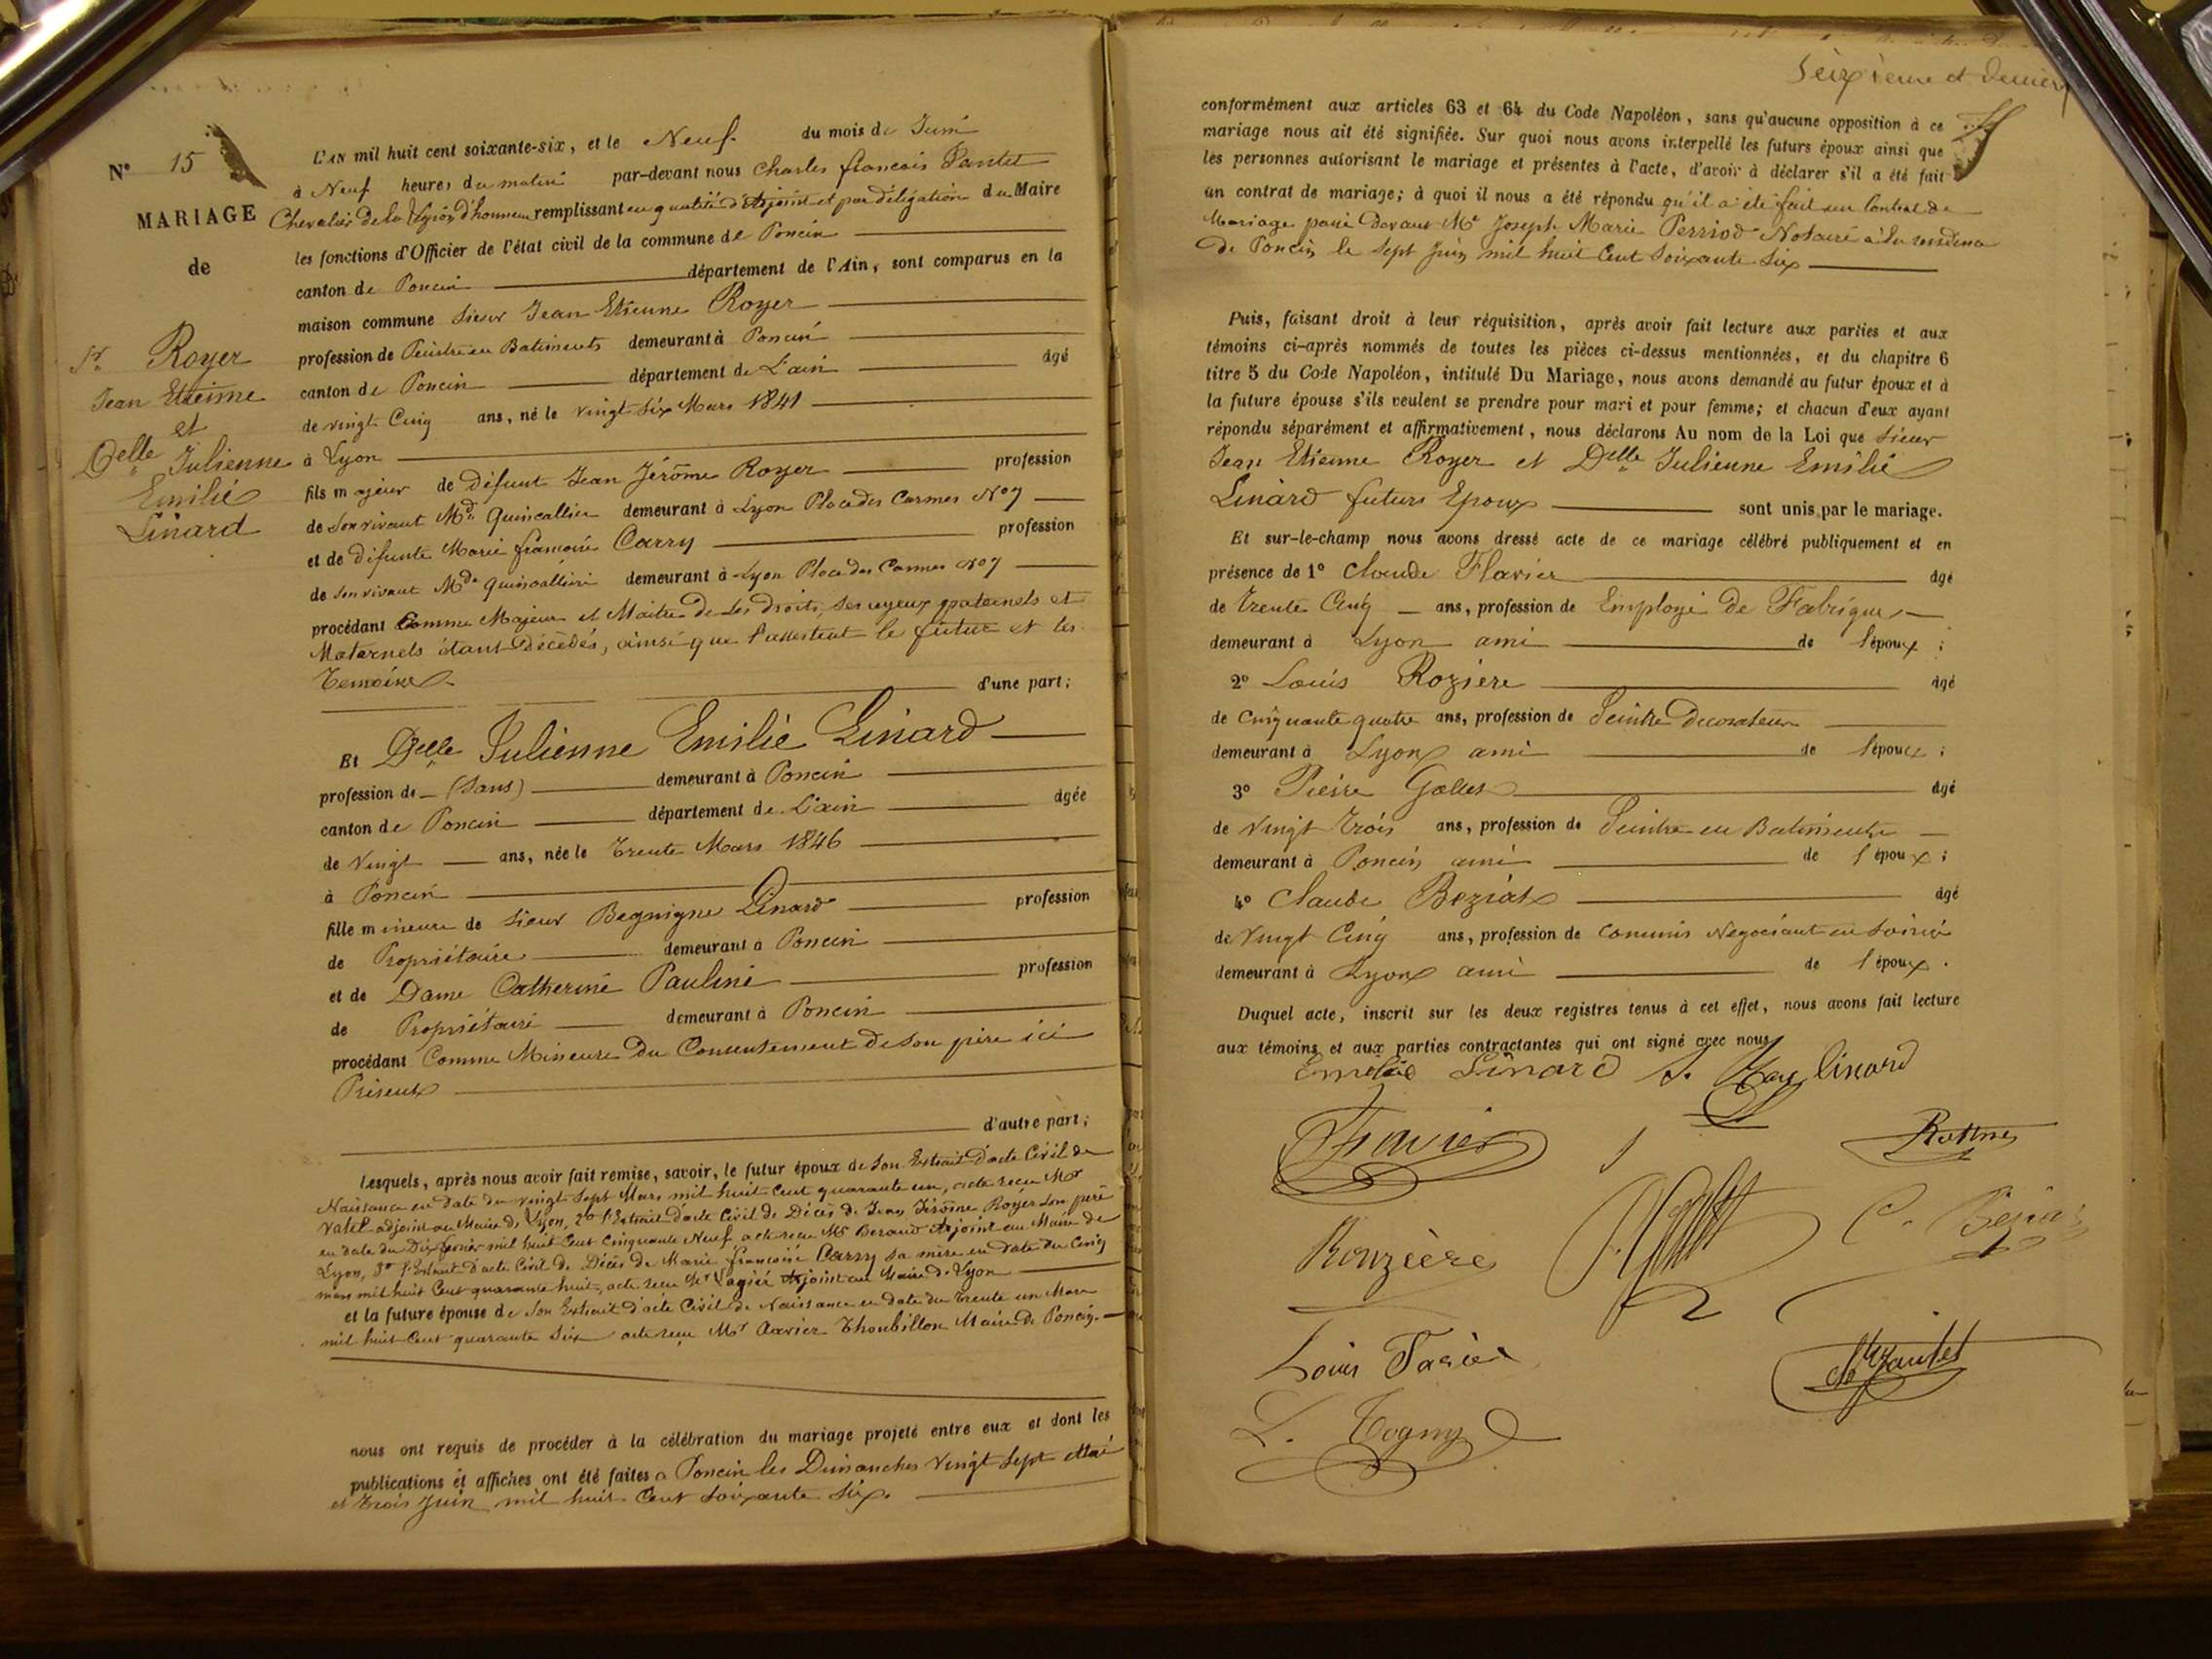 N° 15
MARIAGE
de
Sr. Royer
Jean Etienne
et
Delle Julienne
Emilie
Linard
L'AN mil huit cent soixante-six, et le Neuf du mois de Juin
à Neuf heures du matin par-devant nous Charles françois
Chevalier de la Légion d'honneur remplissant en qualité d'Adjoint et par délégation du Maire
les fonctions d'Officier de l'état civil de la commune de Poncin
canton de Poncin département de l'Ain, sont comparus en la
maison commune Sieur Jean Etienne Royer
profession de Peintre en Batiments demeurant à Poncin
canton de Poncin département de L'ain âgé
de vingt Cinq ans, né le vingt Six Mars 1841
à Lyon
fils majeur de défunt Jean Jérôme Royer profession
de son vivant Md. Quincallier demeurant à Lyon Place des Carmes No 7
et de défunte Marie françoise Carry profession
de son vivant Mde quincallière demeurant à Lyon Place des Carmes No 7
procédant Comme Majeur et Maitre de ses droits, ses ayeux paternels et
Maternels étant Décédés, ainsi que l'attestent le futur et les
Temoins d'une part;
Et Delle Julienne Emilie Linard
profession de (Sans) demeurant à Poncin
canton de Poncin département de L'ain âgée
de Vingt ans, née le Trente Mars 1846
à Poncin
fille mineure de Sieur Begnigne Linard profession
de Propriétaire demeurant à Poncin
et de Dame Catherine Pauline profession
de Propriétaire demeurant à Poncin
procédant Comme Mineure du Consentement de Son père ici
Présent
d'autre part;
Lesquels, après nous avoir fait remise, savoir, le futur époux de Son Extrait d'acte Civil de
Naissance en date du vingt Sept Mars mil huit Cent quarante un, acte reçu Mr
adjoint au Maire de Lyon, 2° l'Extrait d'acte Civil de Décès de Jean Jérôme Royer Son père
en date du Dix février mil huit Cent Cinquante Neuf acte reçu Mr Beraud Adjoint au Maire de
Lyon, 3° l'Extrait d'acte Civil de Décès de Marie françoise Carry sa mère en date du Cinq
mars mil huit Cent quarante huit, acte reçu Mr Adjoint au Maire de Lyon
et la future épouse de Son Extrait d'acte Civil de Naissance en date du Trente un Mars
mil huit Cent quarante Six acte reçu Mr Xavier Thoubillon Maire de Poncin.
nous ont requis de procéder à la célébration du mariage projeté entre eux et dont les
publications et affiches ont été faites a Poncin les Dimanches Vingt Sept Mai
et Trois Juin mil huit Cent Soixante Six.
Seizième et dernier
conformément aux articles 63 et 64 du Code Napoléon, sans qu'aucune opposition à ce
mariage nous ait été signifiée. Sur quoi nous avons interpellé les futurs époux ainsi que
les personnes autorisant le mariage et présentes à l'acte, d'avoir à déclarer s'il a été fait
un contrat de mariage; à quoi il nous a été répondu qu'il a été fait un Contrat de
Mariage passé devant Me Joseph Marie Perriod Notaire à la residence
de Poncin le Sept Juin mil huit Cent Soixante Six
Puis, faisant droit à leur réquisition, après avoir fait lecture aux parties et aux
témoins ci-après nommés de toutes les pièces ci-dessus mentionnées, et du chapitre 6
titre 5 du Code Napoléon, intitulé Du Mariage, nous avons demandé au futur époux et à
la future épouse s'ils veulent se prendre pour mari et pour femme; et chacun d'eux ayant
répondu séparément et affirmativement, nous déclarons Au nom de la Loi que Sieur
Jean Etienne Royer et Delle Julienne Emilie
Linard futurs Epoux sont unis par le mariage.
Et sur-le-champ nous avons dressé acte de ce mariage célébré publiquement et en
présence de 1° Claude Flavier âgé
de Trente Cinq ans, profession de Employé de Fabrique
demeurant à Lyon ami de l'époux;
2° Louis Rozière âgé
de Cinquante quatre ans, profession de Peintre Decorateur
demeurant à Lyon ami de l'époux;
3° Pierre âgé
de Vingt Trois ans, profession de Peintre en Batiments
demeurant à Poncin ami de l'époux;
4° Claude Beziat âgé
de Vingt Cinq ans, profession de Commis Negociant en Soirie
demeurant à Lyon ami de l'époux.
Duquel acte, inscrit sur les deux registres tenus à cet effet, nous avons fait lecture
aux témoins et aux parties contractantes qui ont signé avec nous
Emilie Linard linard
Flavier
Rouzière C. Beziat
Louis